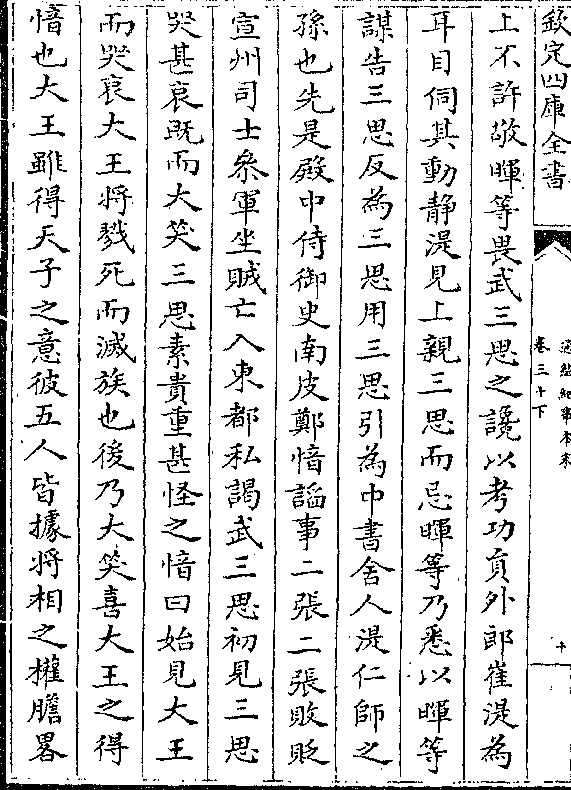 欽定四庫全書
通鑑紀事本末
卷三十下
十
上不許敬暉等畏武三思之讒以考功員外郎崔湜為
耳目伺其動静湜見上親三思而忌暉等乃悉以暉等
謀告三思反為三思用三思引為中書舍人湜仁師之
孫也先是殿中侍御史南皮鄭愔諂事二張二張敗貶
宣州司士叅軍坐贓亡入東都私謁武三思初見三思
哭甚哀既而大笑三思素貴重甚怪之愔曰始見大王
而哭哀大王將戮死而滅族也後乃大笑喜大王之得
愔也大王雖得天子之意彼五人皆據將相之權膽畧